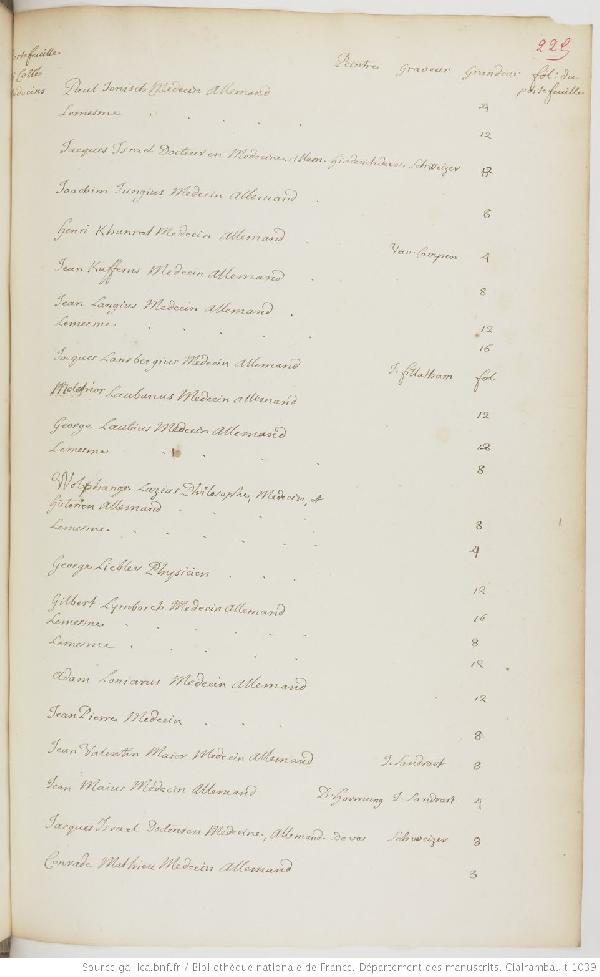 229
Peintre Graveur Grandeur fol. du
portefeuille
Cottes
Paul Jonisch Médecin Allemand 4
Lemesme 12
Jacques Israel Docteur en Medecine Allem. Schweizer 12
Joachim Jungius Medecin Allemand 6
Henri Khunrat Medecin Allemand Van-Compen 4
Jean Kufferus Medecin Allemand 8
Jean Langius Medecin Allemand 12
Lemesme 16
Jacques Lansbergius Medecin Allemand fol.
Melchior Laubanus Medecin allemand 12
George Laubius Medecin Allemand 12
Lemesme 8
Wolphange Lazius Philosophe, Medecin, et
historien Allemand 8
Lemesme 4
George Liebler Physicien 12
Gilbert Lymborch Medecin Allemand 16
Lemesme 8
Lemesme 12
Adam Lonicerus Medecin Allemand 12
Jean Pierre Medecin 8
Jean Valentin Maior Medecin Allemand J. Sandrart 8
Jean Maius Medecin Allemand D. Hornung J. Sandrart 4
Jacques Israel Docteur en Medecine, Allemand Schweizer 8
Conrade Mathieu Medecin Allemand 8
Source gallica.bnf.fr / Bibliothèque nationale de France. Département des manuscrits. Clairambault 1039